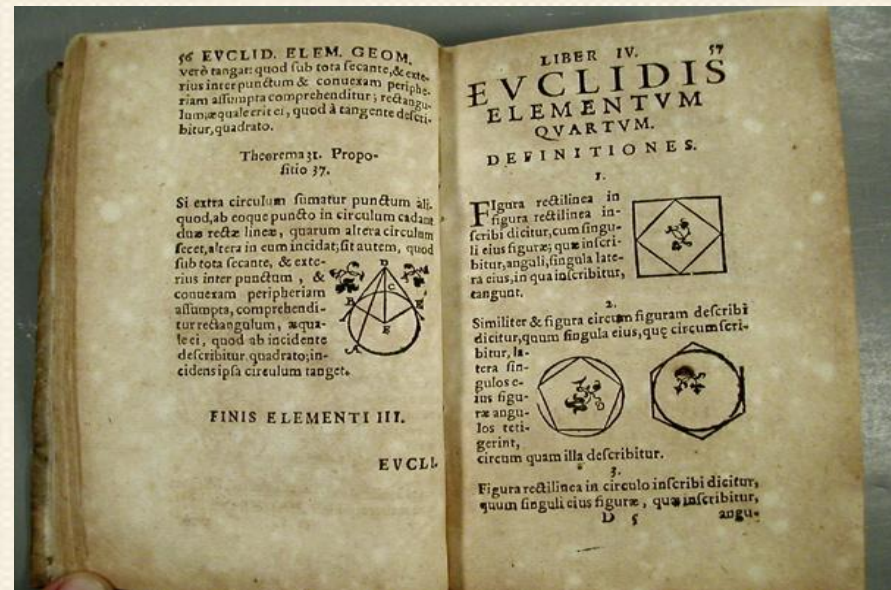 56 EVCLID. ELEM. GEOM.
verò tangat: quod ſub tota ſecante, & exte-
rius inter punctum & conuexam periphe-
riam aſſumpta comprehenditur; rectangu-
lum, æquale erit ei, quod à tangente deſcri-
bitur, quadrato.
Theorema 31. Propo-
ſitio 37.
Si extra circulum ſumatur punctum ali-
quod, ab eoque puncto in circulum cadant
duæ rectæ lineæ, quarum altera circulum
ſecet, altera in eum incidat; ſit autem, quod
ſub tota ſecante, & exte-
rius inter punctum, &
conuexam peripheriam
aſſumpta, comprehendi-
tur rectangulum, æqua-
le ei, quod ab incidente
deſcribitur quadrato; in-
cidens ipſa circulum tanget.
D
C
B
E
A
FINIS ELEMENTI III.
EVCLI.
LIBER IV. 57
EVCLIDIS
ELEMENTVM
QVARTVM.
DEFINITIONES.
1.
FIgura rectilinea in
figura rectilinea in-
ſcribi dicitur, cum ſingu-
li eius figuræ; quæ inſcri-
bitur, anguli, ſingula late-
ra eius, in qua inſcribitur,
tangunt.
2.
Similiter & figura circum figuram deſcribi
dicitur, quum ſingula eius, quę circumſcri-
bitur, la-
tera ſin-
gulos e-
ius figu-
ræ angu-
los teti-
gerint,
circum quam illa deſcribitur.
3.
Figura rectilinea in circulo inſcribi dicitur,
quum ſinguli eius figuræ, quæ inſcribitur,
D 5 angu-